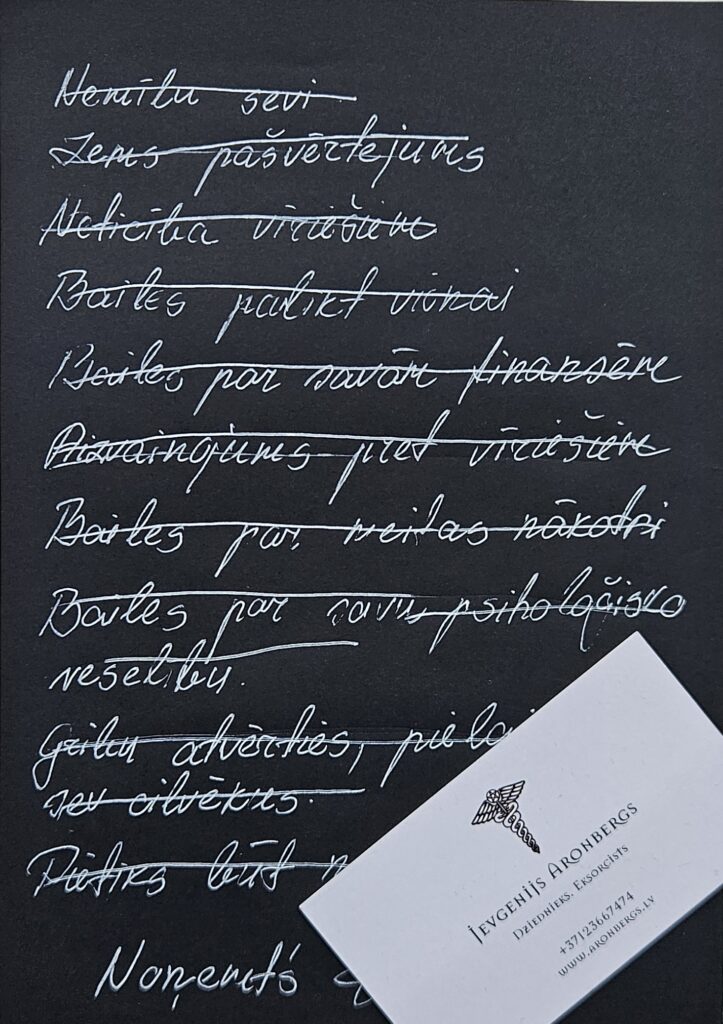 Nemīlu sevi
Zems pašvērtejums
Neticība vīriešiem
Bailes palikt vienai
Bailes par savām finansēm
Aizvainojums pret vīriešiem
Bailes par meitas nākotni
Bailes par savu psiholoģisko
veselību.
Gribu atvērties, pielai
sev cilvēkus.
Pietiks būt
Noņemts
Jevgenijs Aronbergs
Dziednieks, Eksorcists
+37123667474
www.aronbergs.lv